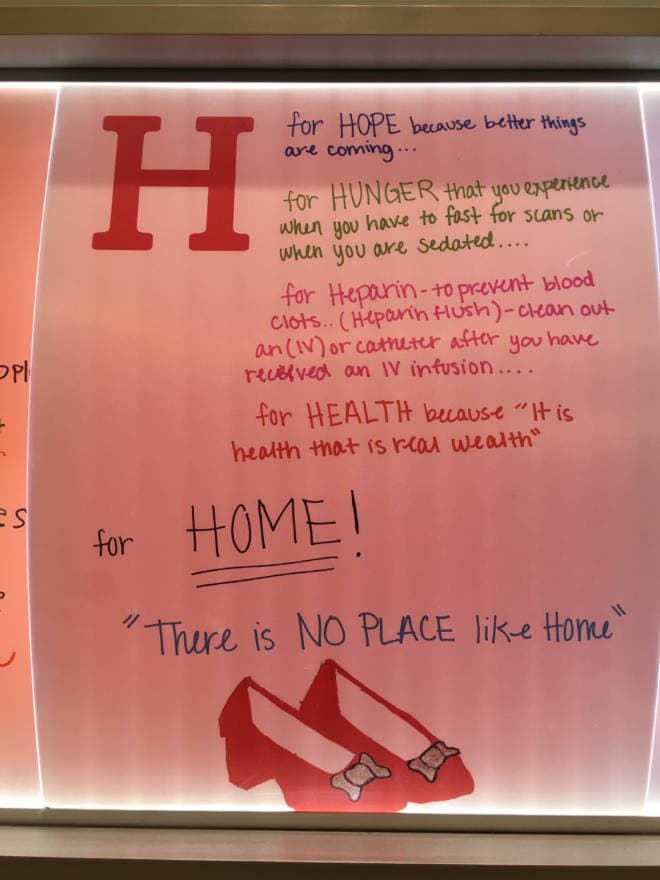 H
for HOPE because better things
are coming...
for HUNGER that you experience
when you have to fast for scans or
when you are sedated....
for Heparin - to prevent blood
clots.. (Heparin flush) - clean out
an (IV) or catheter after you have
received an IV infusion....
for HEALTH because "It is
health that is real wealth"
for HOME!
"There is NO PLACE like Home"